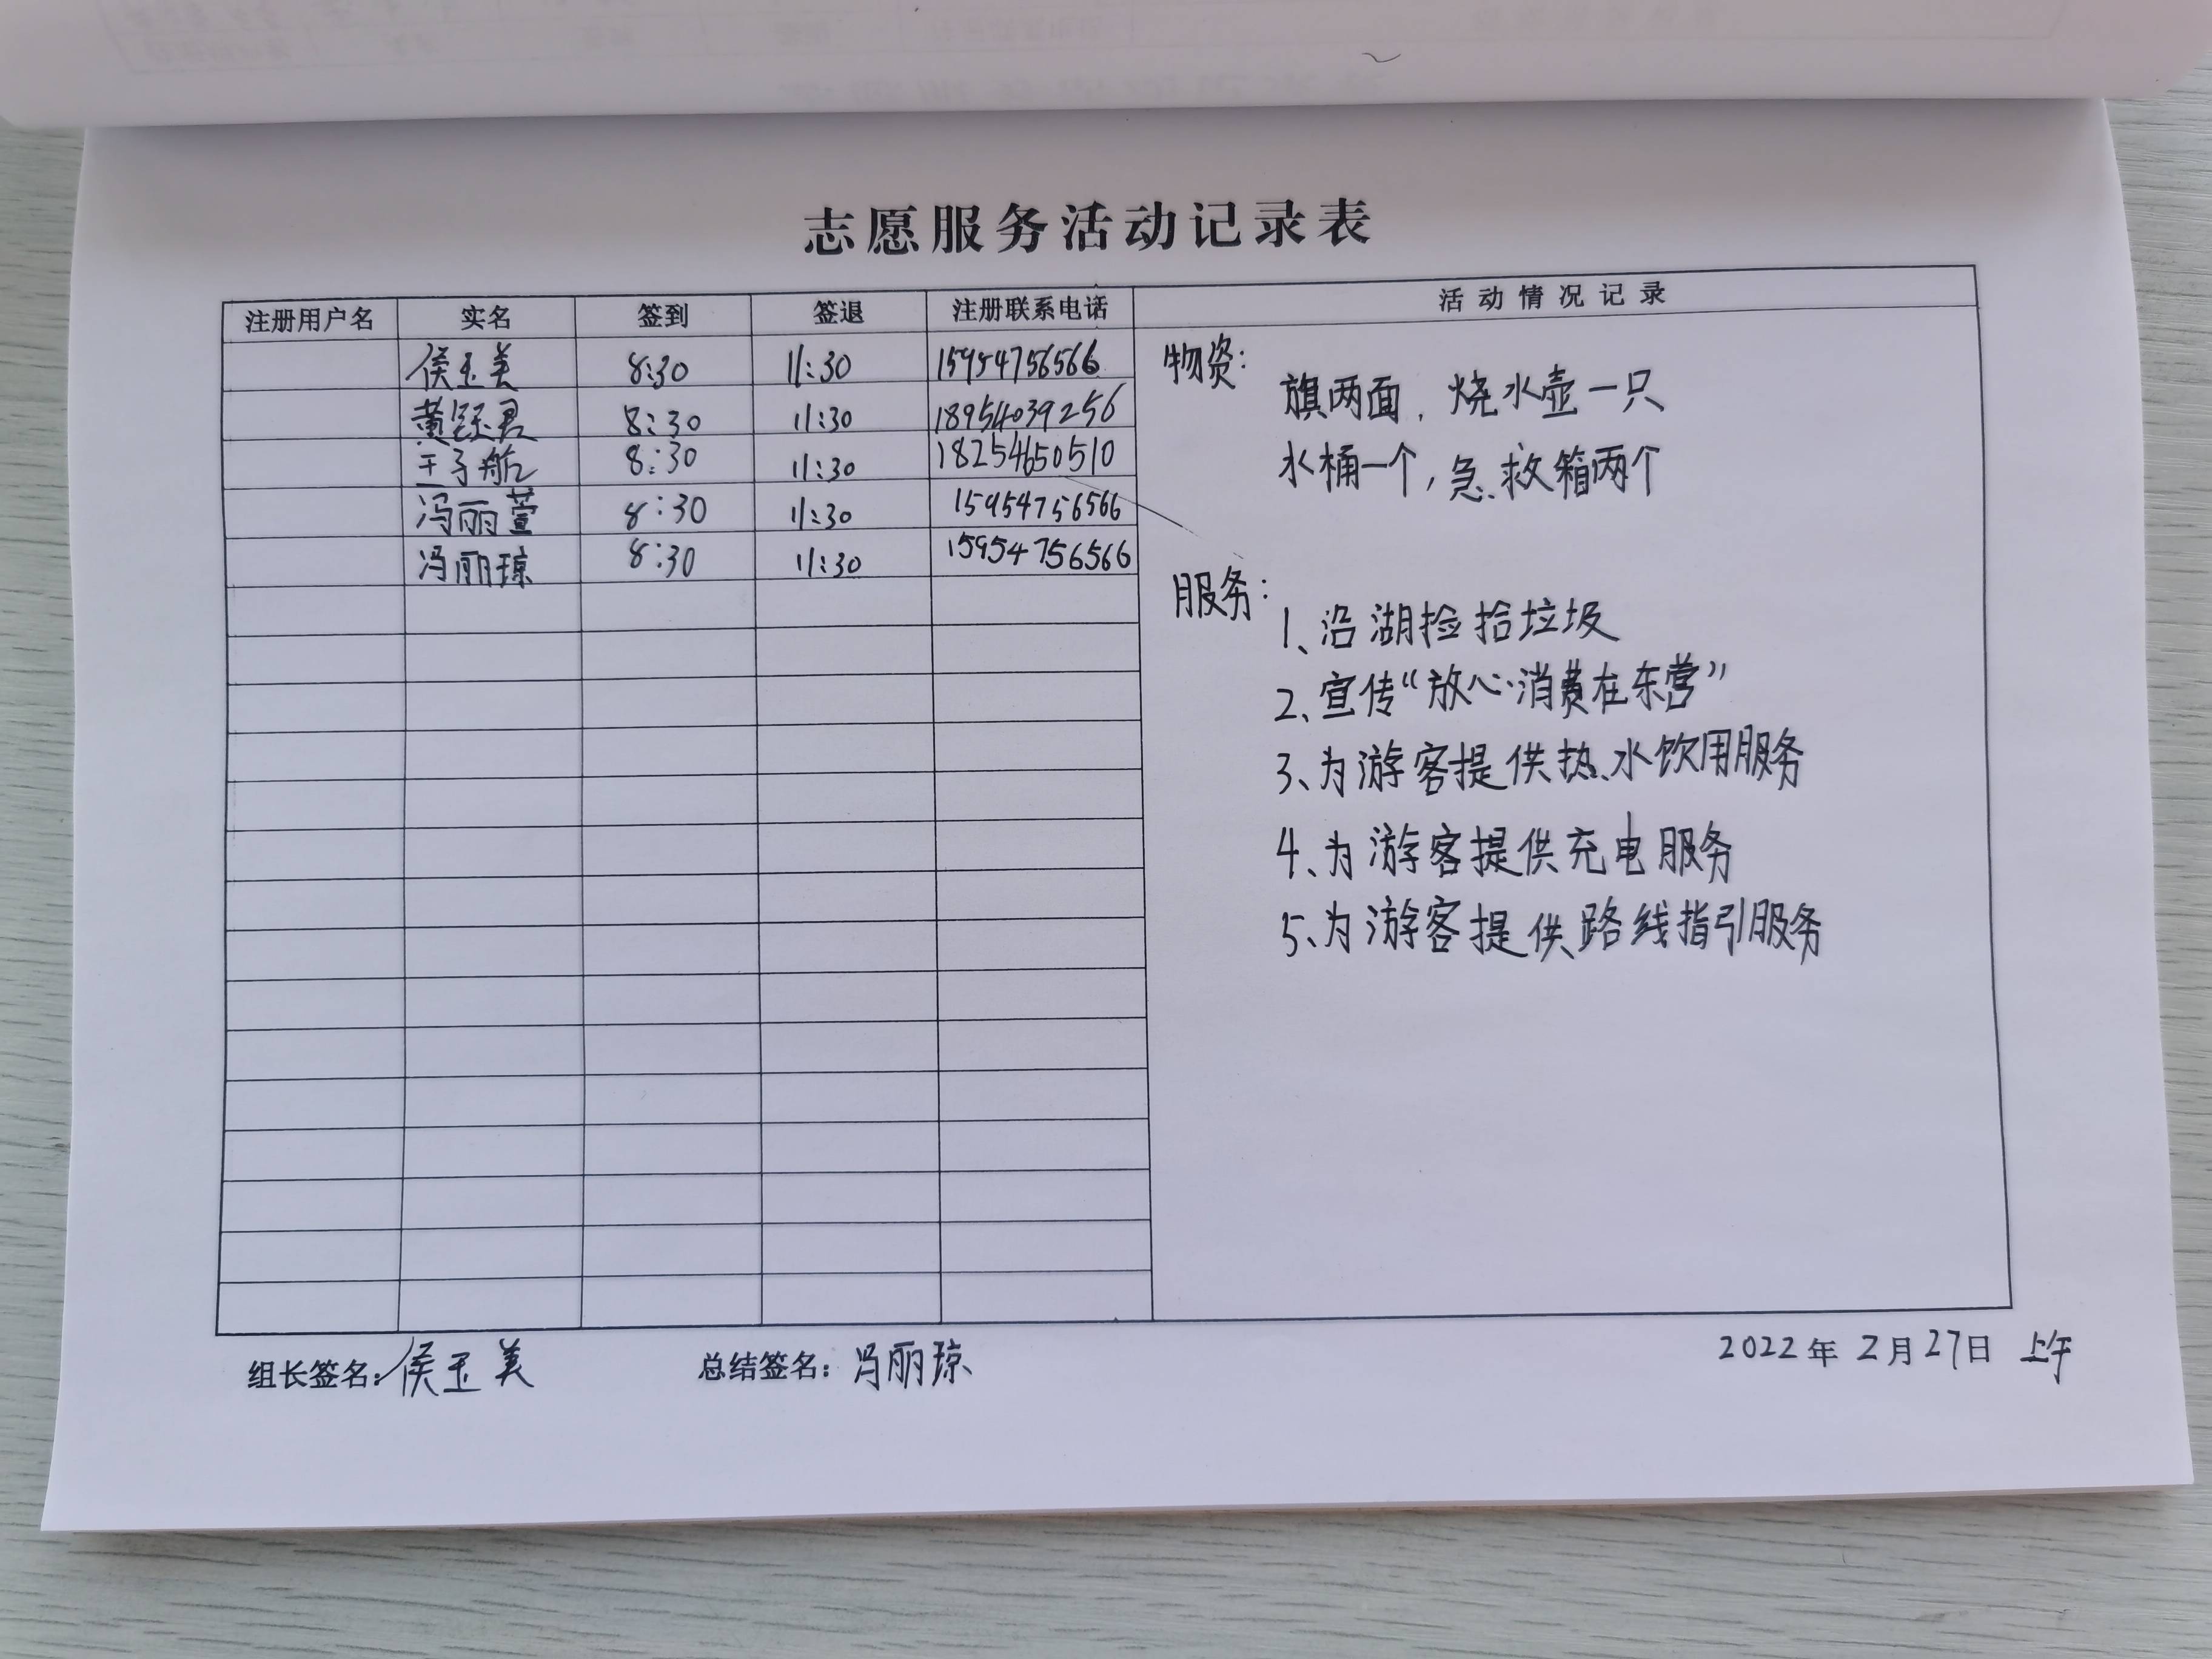 志愿服务活动记录表
注册用户名 实名 签到 签退 注册联系电话 活动情况记录
侯玉美 8:30 11:30 15954756566
黄钰君 8:30 11:30 18954039256
王子航 8:30 11:30 18254650510
冯丽萱 8:30 11:30 15954756566
冯丽琼 8:30 11:30 15954756566
物资：
旗两面，烧水壶一只
水桶一个，急救箱两个
服务：
1、沿湖捡拾垃圾
2、宣传“放心消费在东营”
3、为游客提供热水饮用服务
4、为游客提供充电服务
5、为游客提供路线指引服务
组长签名：侯玉美 总结签名：冯丽琼 2022年2月27日 上午